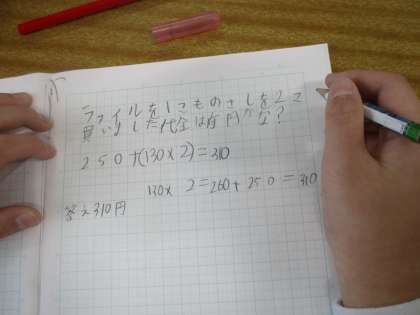 ファイルを1こものさしを2こ
買いました代金は何円かな?
250+(130×2)=310
130×2=260+250=310
答え310円